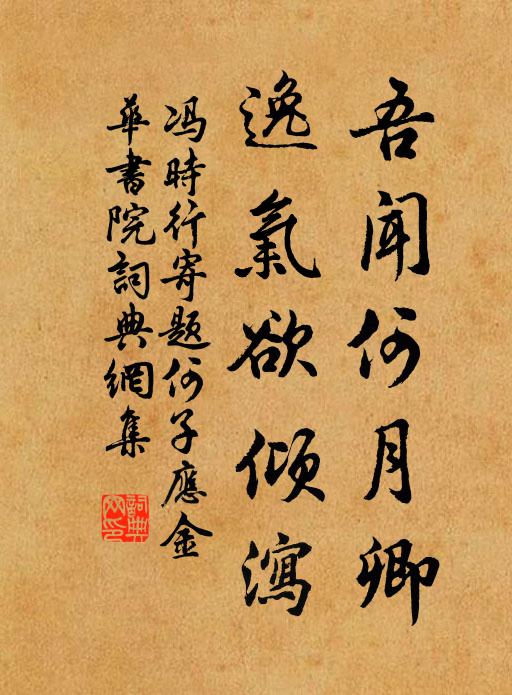 吾聞何月卿
逸氣欲傾瀉
冯時行寄题何子應金
華書院詞典網集
詞典网印